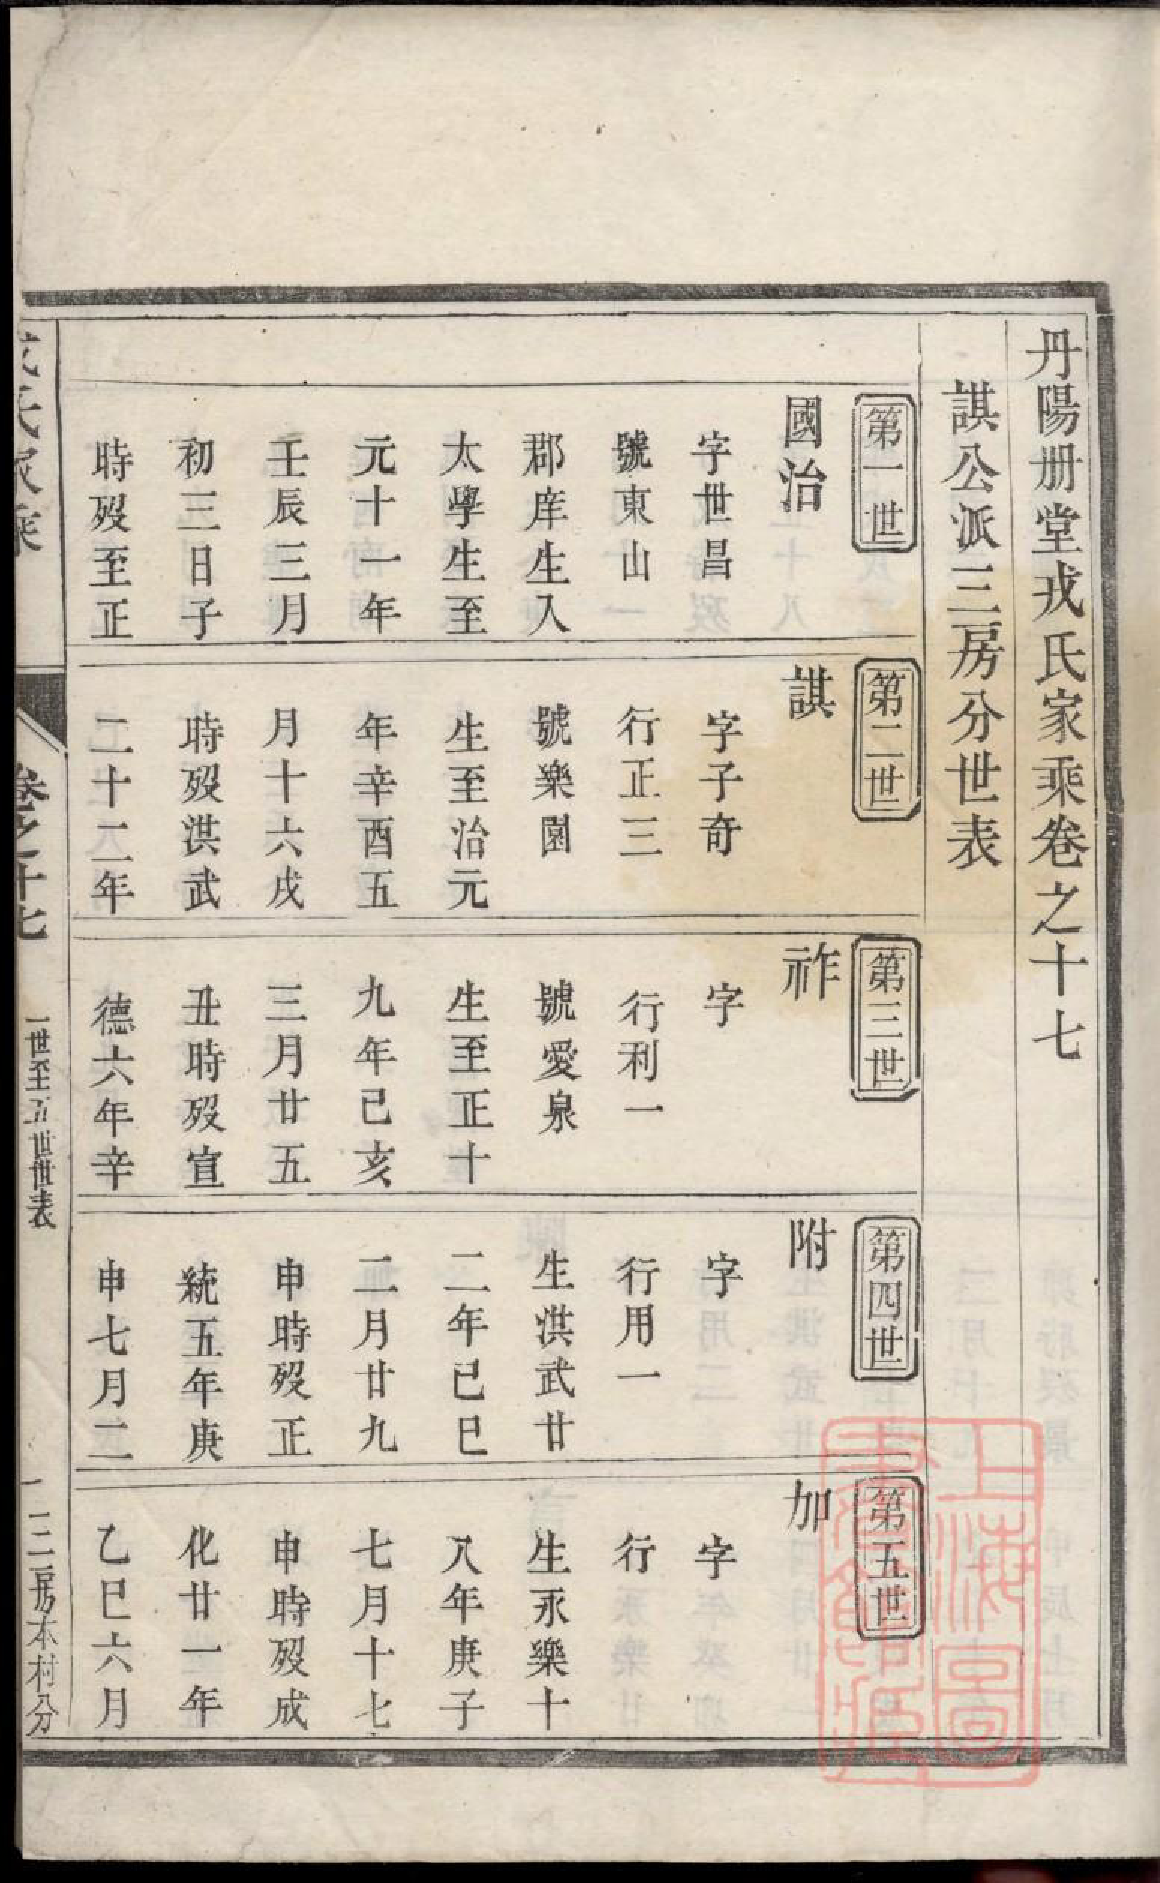 丹陽册堂戎氏家乘卷之十七
諆公派三房分世表
第一世
國治
字世昌
號東山
郡庠生入
太學生至
元十一年
壬辰三月
初三日子
時歿至正
第二世
諆
字子奇
行正三
號樂園
生至治元
年辛酉五
月十六戌
時歿洪武
二十二年
第三世
祚
字
行利一
號愛泉
生至正十
九年己亥
三月廿五
丑時歿宣
德六年辛
第四世
附
字
行用一
生洪武廿
二年己巳
二月廿九
申時歿正
統五年庚
申七月二
第五世
加
字
行
生永樂十
八年庚子
七月十七
申時歿成
化廿一年
乙巳六月
戎氏家乘
卷之十七
一世至五世世表
一
三房本村分
上海圖書館藏